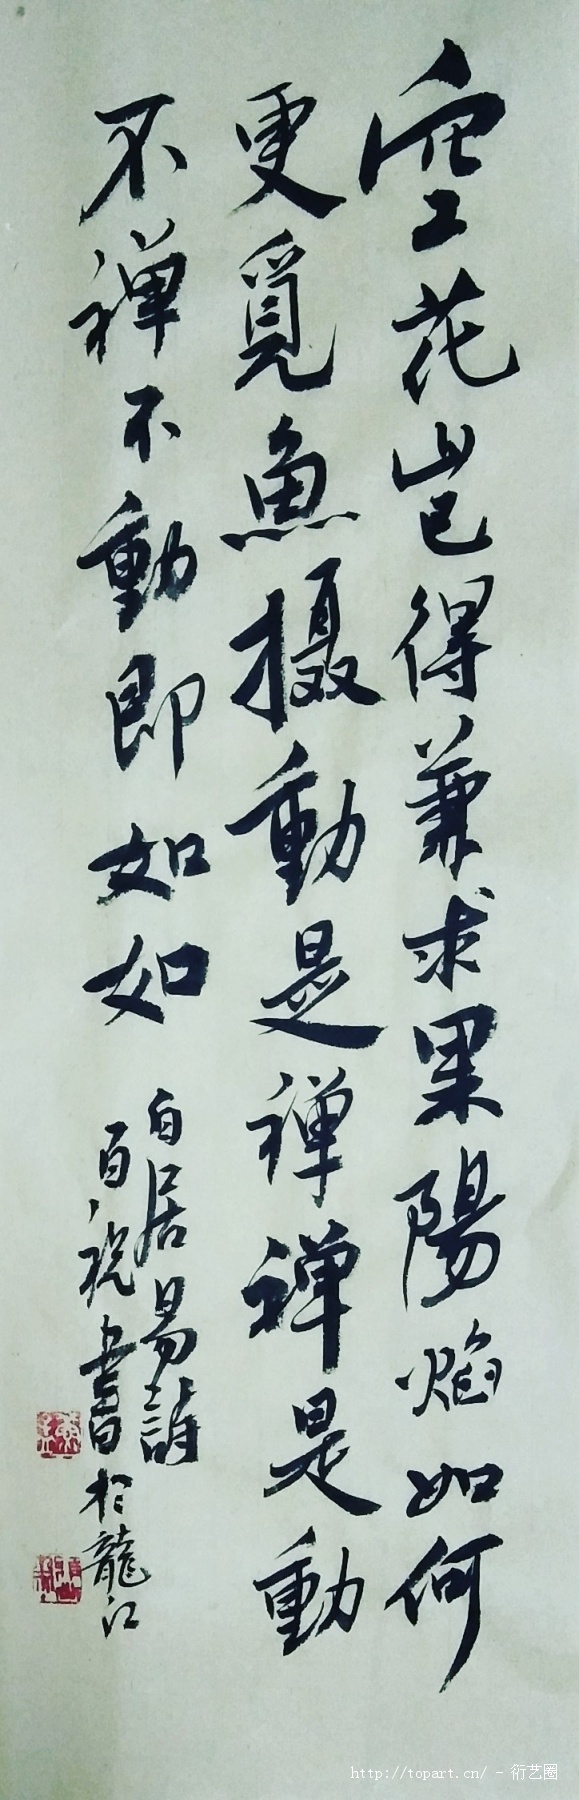 空花岂得兼求果陽焰如何
更覓魚摄動是禅禅是動
不禅不動即如如
白居易詩
百祝書於龍江
http://topart.cn/ - 衍艺圈